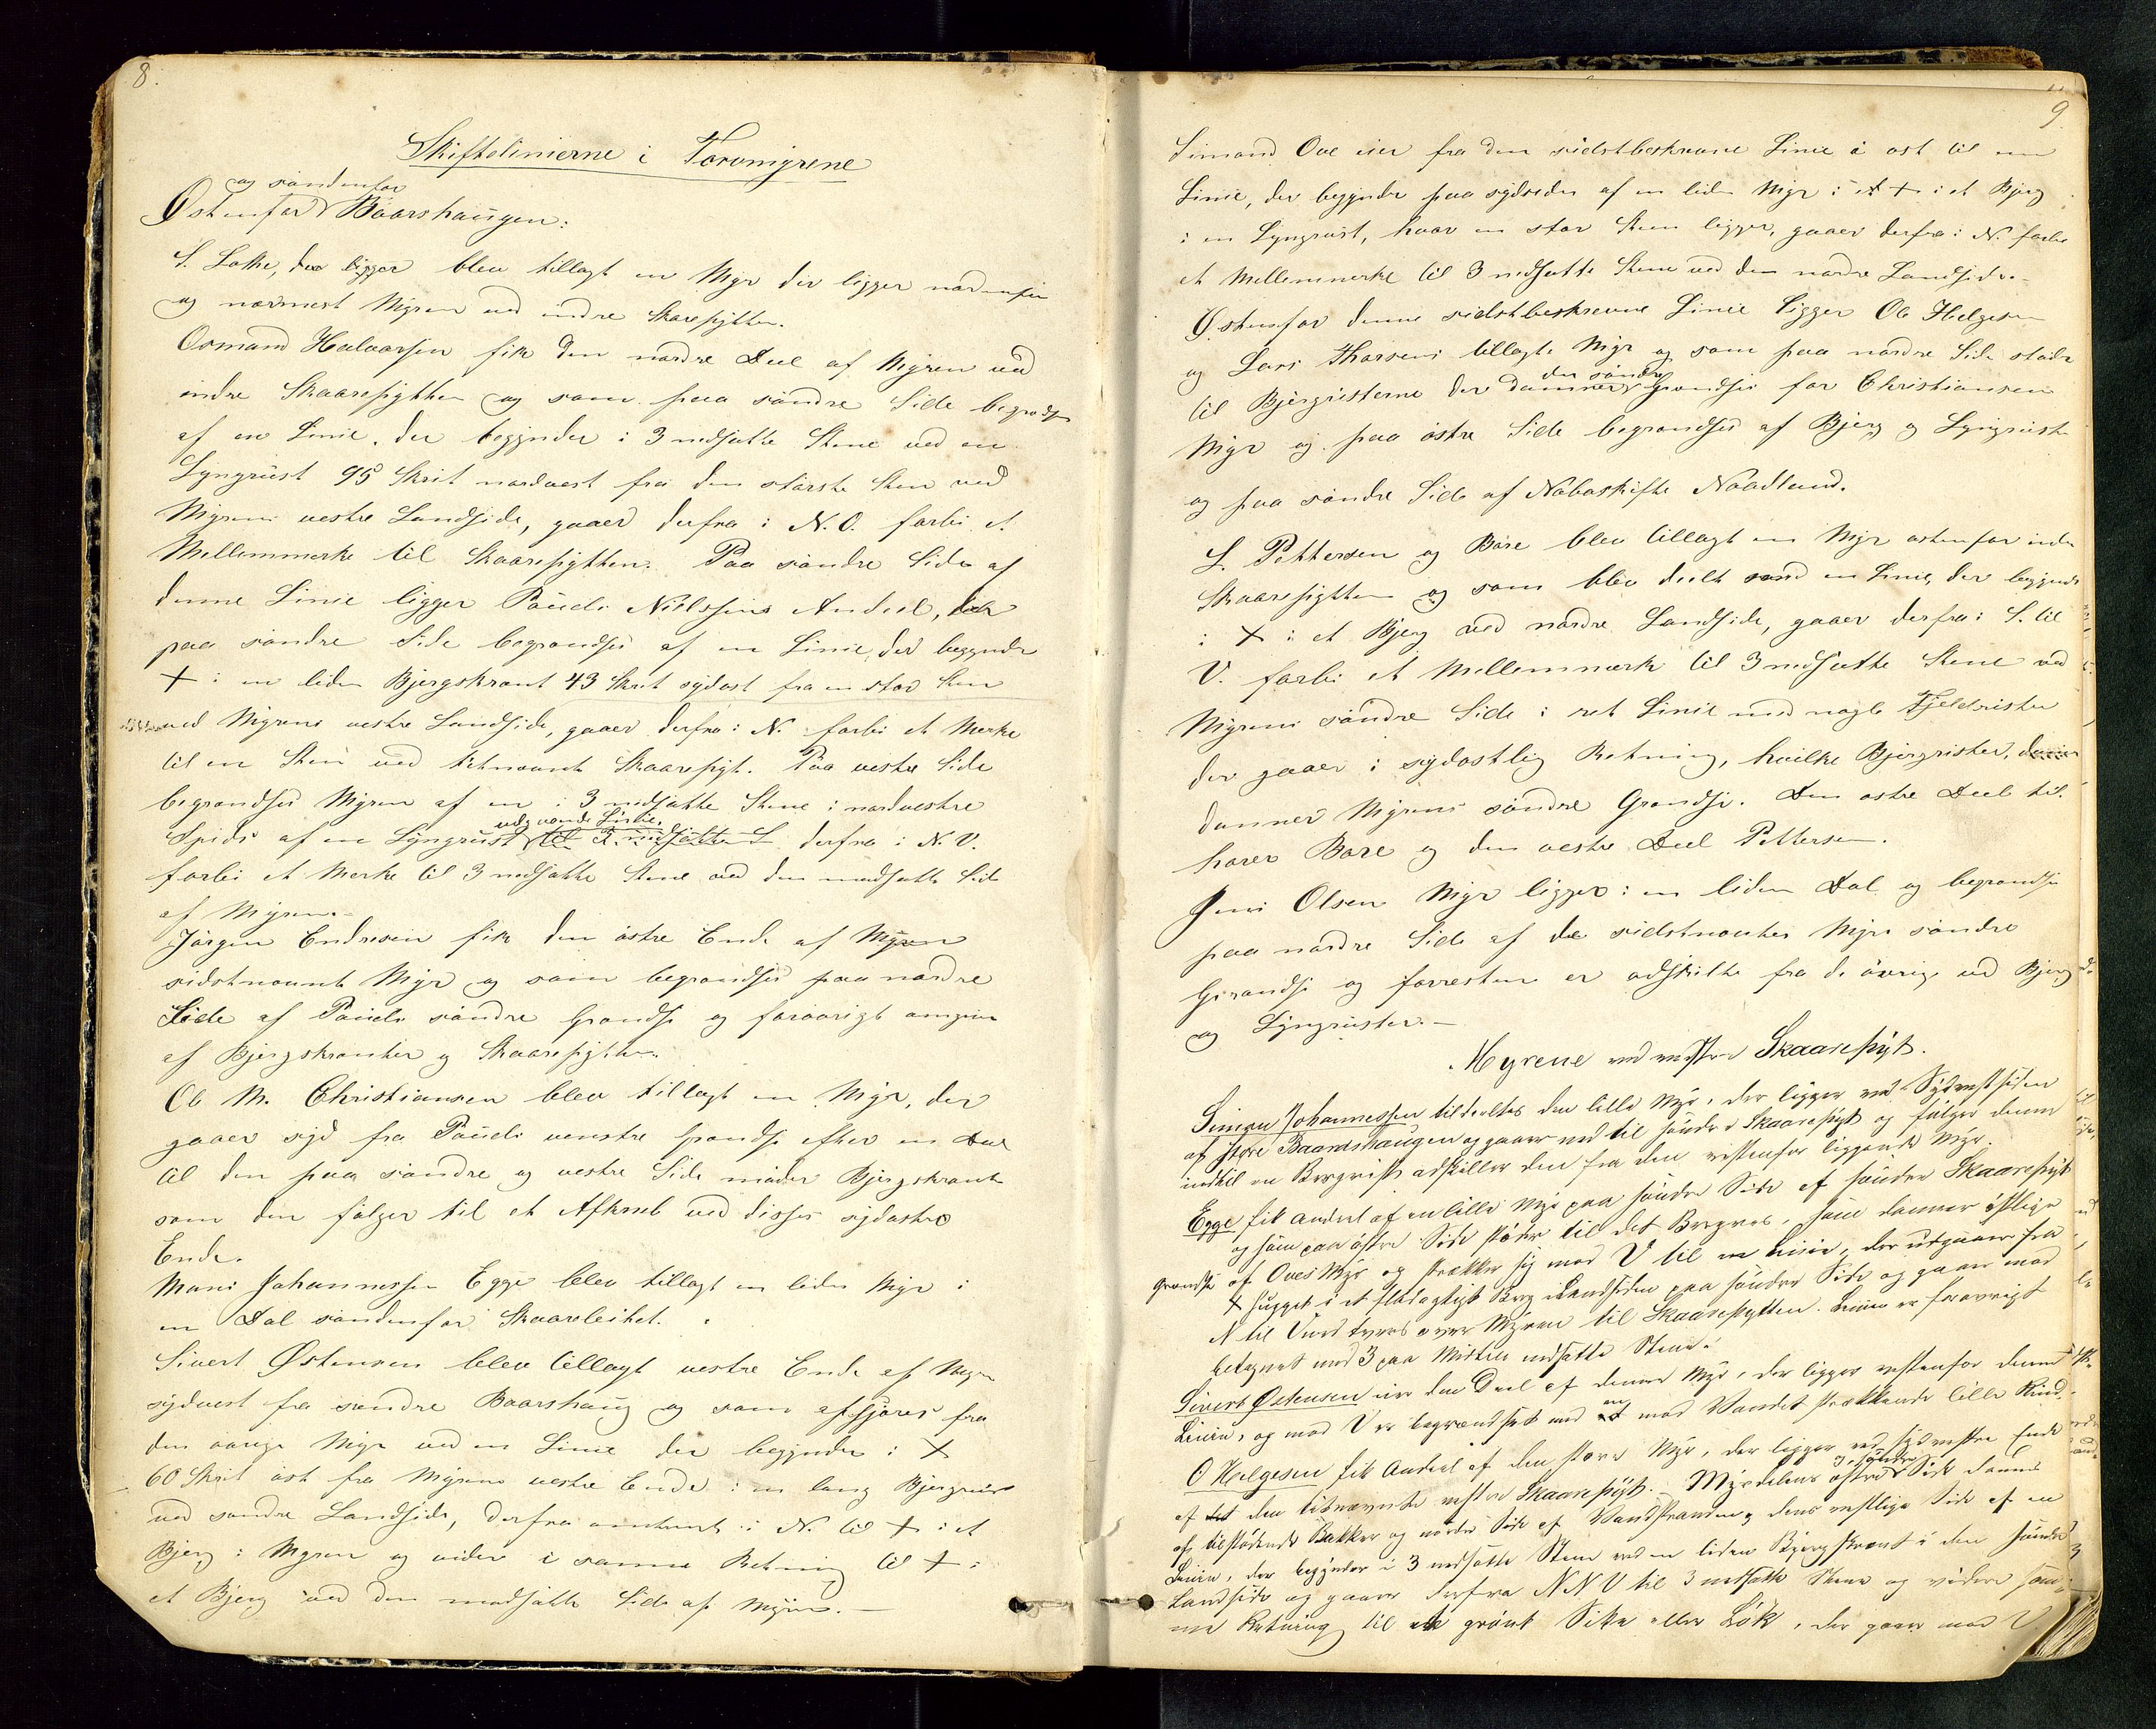 8.
Skiftelinierne i Torvmyrene
og søndenfor
Østenfor Baarshaugen:
S. Lothe, der ligger blev tillagt en Myr der ligger nordenfor
og nærmest Myren ved indre Skarepytten.
Osmand Halvorsen fik den nordre Deel af Myren ved
indre Skaarepytten og som paa søndre Side begrændses
af en Linie, der begynder i 3 nedsatte Stene ved en
Lyngrust 95 Skrit nordvest fra den største Sten ved
Myrens vestre Landside, gaaer derfra i N.O. forbi et
Mellemmerke til Skaarepytten. Paa søndre Side af
denne Linie ligger Pouels Nielssens Andeel, der
paa søndre Side begrændses af en Linie, der begynder
+ i en liden Bjergskrænt 43 Skrit sydost fra en stor Sten
ved Myrens vestre Landside, gaaer derfra i N. forbi et Merke
til en Sten ved sidstnævnte Skaarepyt. Paa vestre Side
begrændses Myren af en i 3 nedsatte Stene i nordvestre
udgaaende Linie,
Spids af en Lyngrust til 3 nedsatte S derfra i N.V.
forbi et Merke til 3 nedsatte Stene ved den modsatte Side
af Myren.
Jørgen Endresen fik den østre Ende af Myren
sidstnævnte Myr og som begrændses paa nordre
Side af Pouels søndre Grændse og forøvrigt omgives
af Bjergskrænter og Skaarepytten.
Ole M. Christiansen blev tillagt en Myr, der
gaaer syd fra Pouels venstre Grændse efter en Dal
til den paa søndre og vestre Side møder Bjergskrænte
som den følger til et Afhæld ved disses sydøstre
Ende.
Mons Johannessen Egge blev tillagt en liden Myr i
en Dal søndenfor Skaarleitet.
Sivert Østensen blev tillagt vestre Ende af Myren
sydvest fra søndre Baarshaug og som afgjøres fra
den øvrige Myr ved en Linie der begynder i +
60 Skrit øst fra Myrens vestre Ende i en lang Bjergrust
ved søndre Landside, derfra omtrent i N. til + i et
Bjerg i Myren og videre i samme Retning til + i
et Bjerg ved den modsatte Side af Myren.
9
Simond Ove eier fra den sidstbeskrevne Linie i øst til en
Linie, der begynder paa sydsiden af en liden Myr i et + i et Bjerg
i en Lyngrust, hvor en stor Sten ligger, gaaer derfra i N. forbi
et Mellemmerke til 3 nedsatte Stene ved den nordre Landside.
Østenfor denne sidstbeskrevne Linie ligger Ole Helgesen
og Lars Thorsens tillagte Myr og som paa nordre Side støder
den søndre
til Bjergrusterne der danner Grændse for Christiansen
Myr og paa østre Side begrændses af Bjerg og Lyngruster
og paa søndre Side af Naboskifte Naadland.
L. Pettersen og Bore blev tillagt en Myr østenfor indre
Skaarepytten og som blev deelt ved en Linie, der begynder
i + i et Bjerg ved nordre Landside, gaaer derfra i S. til
V. forbi et Mellemmerk til 3 nedsatte Stene ved
Myrens søndre Side i ret Linie med nogle Fjeldruster
der gaaer i sydøstlig Retning, hvilke Bjergruster,
danner Myrens søndre Grændse. Den østre Deel til-
hører Bore og den vestre Deel Pettersen.
Jens Olsen Myr ligger i en liden Dal og begrændses
paa nordre Side af de sidstnævntes Myrs søndre
Grændse og forresten er adskilte fra de øvrige ved Bjerg
og Lyngruster.
Myrene ved vestre Skaarepyt.
Simon Johannessen tildeeltes den lille Myr, der ligger ved Sydvestsiden
af store Baardshaugen og gaaer ned til søndre Skaarepyt og følger denne
indtil en Bergrist adskiller den fra den vestenfor liggende Myr.
Egge fik Andeel af en lille Myr paa søndre Side af søndre Skaarepyt
og som paa østre Side støder til det Bergras, som danner østlige
Grændse af Oves Myr og strækker sig mod V til en Linie, der udgaaer fra
+ hugget i et fladagtigt Berg i Landsiden paa søndre Side og gaaer mod
N til V ved tvers over Myren til Skaarepytten. Linien er forøvrigt
betegnet med 3 paa Midten nedsatte Stene.
Sivert Østensen eier den Deel af denne Myr, der ligger vestenfor denne
en
Linie, og mod V er begrændset ved et mod Vandet strækkende lille Rind.
O Helgesen fik Andeel af den store Myr, der ligger ved sydvestre Ende
og søndre
af det den titnævnte vestre Skaarepyt. Myrdelens østre Side dannes
af tilstødende Bakker og nordre Side af Vandstranden og dens vestlige Side af en
Linie, der begynder i 3 nedsatte Stene ved en liden Bjergskrænt i den søndre
Landside og gaaer derfra NNV til 3 nedsatte Stene og videre sam-
me Retning til et grønt Sika eller Løk, der gaaer mod V